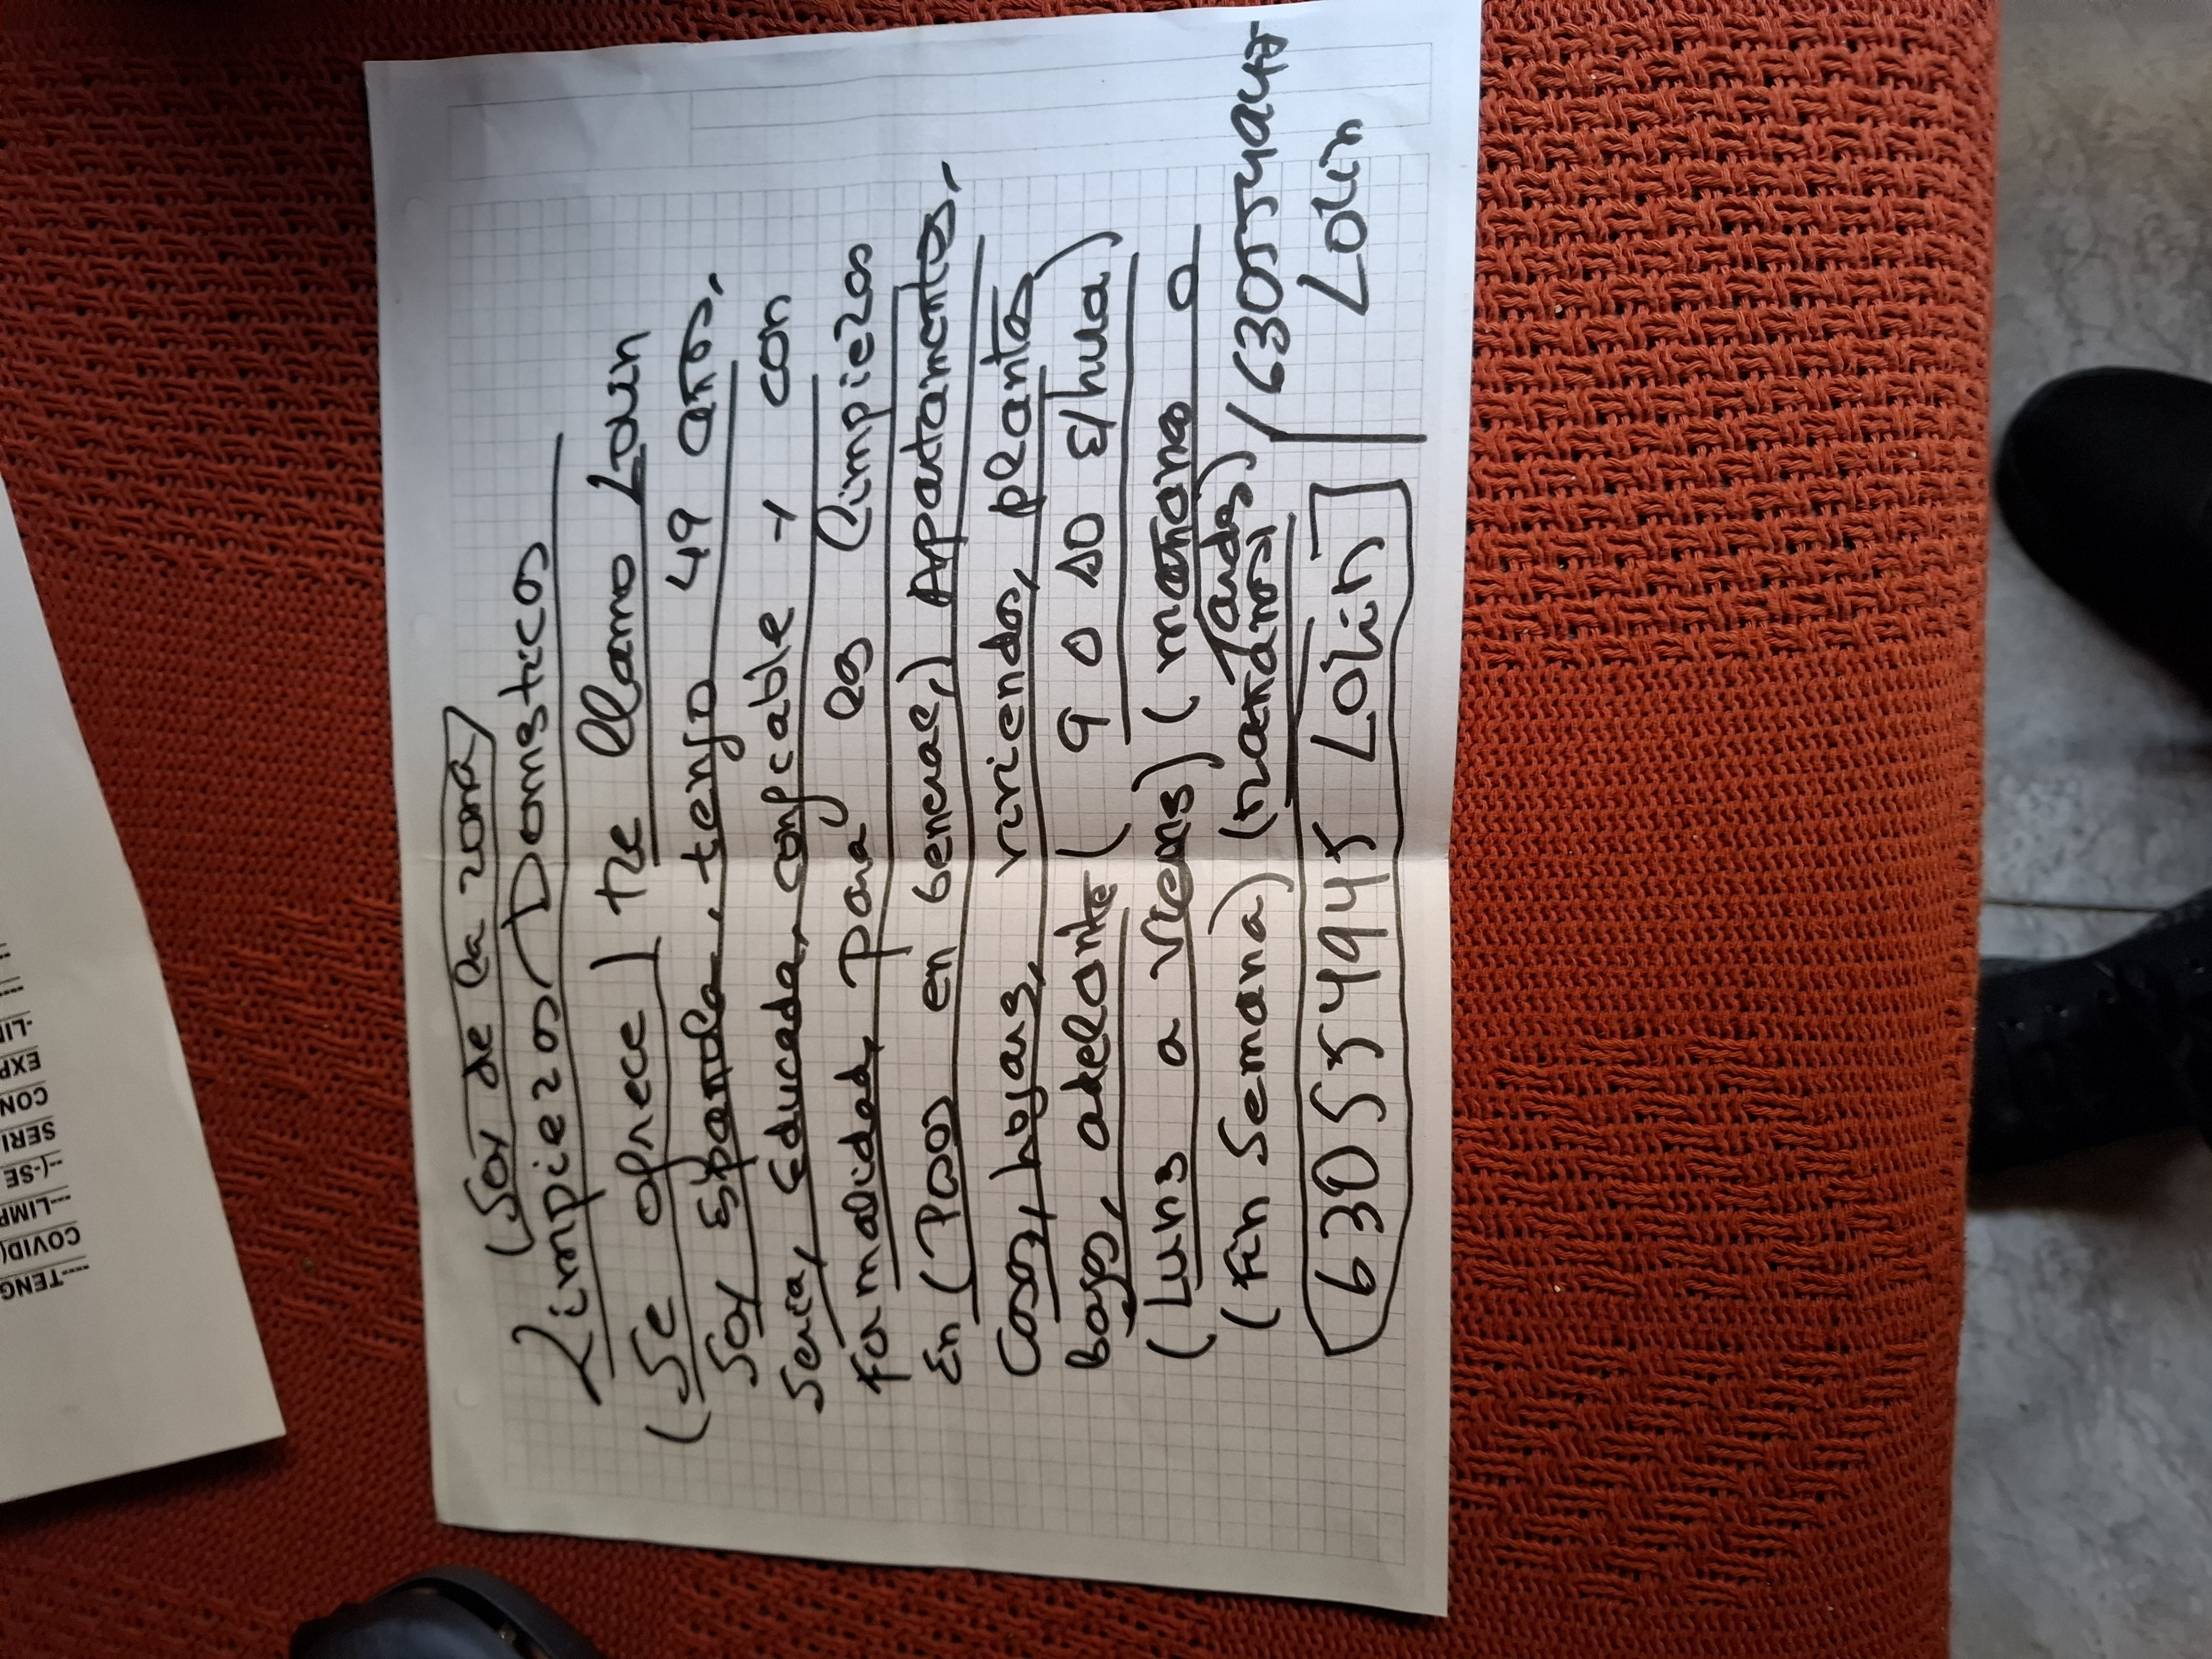 (Soy de la zona)
Limpiezas Domesticos
(Se ofrece) Me llamo Loin
Soy Española, tengo 49 años,
Seria, Educada, conficable y con
Formalidad, para las limpiezas
En (Pisos en general,) Apartamentos,
Casas, hogares, viviendas, plantas
bajas, adelante (9 o 10 €/hora)
(Luns a Viens) (mañana o
Tardes)
(Fin Semana) / 630554947
630554945 Lolin
Lolin
---TENG
COVID(
--LIMP
--(-SE
SERI
CON
EXP
-LI